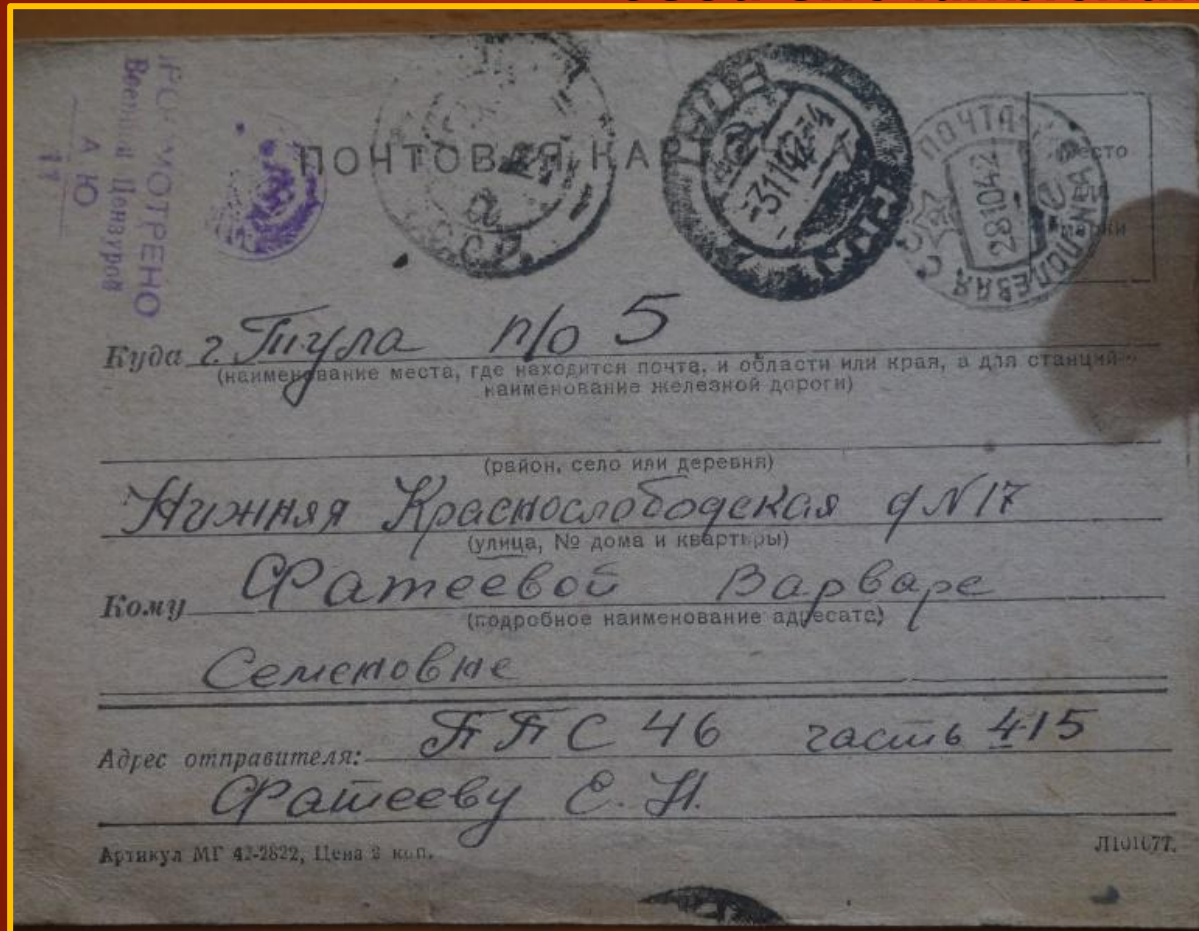 ПОЧТОВАЯ КАР
ПРОСМОТРЕНО
Военной Цензурой
А Ю
11
СССР
а
-3 11 42
ПОЛЕВАЯ ПОЧТА
28 10 42
Место
марки
Куда г. Тула п/о 5
(наименование места, где находится почта, и области или края, а для станций
наименование железной дороги)
(район, село или деревня)
Нижняя Краснослободская д N 17
(улица, № дома и квартиры)
Кому Фатеевой Варваре
(подробное наименование адресата)
Семеновне
Адрес отправителя: ППС 46 часть 415
Фатееву Е. Н.
Артикул МГ 42-2822, Цена 2 коп.